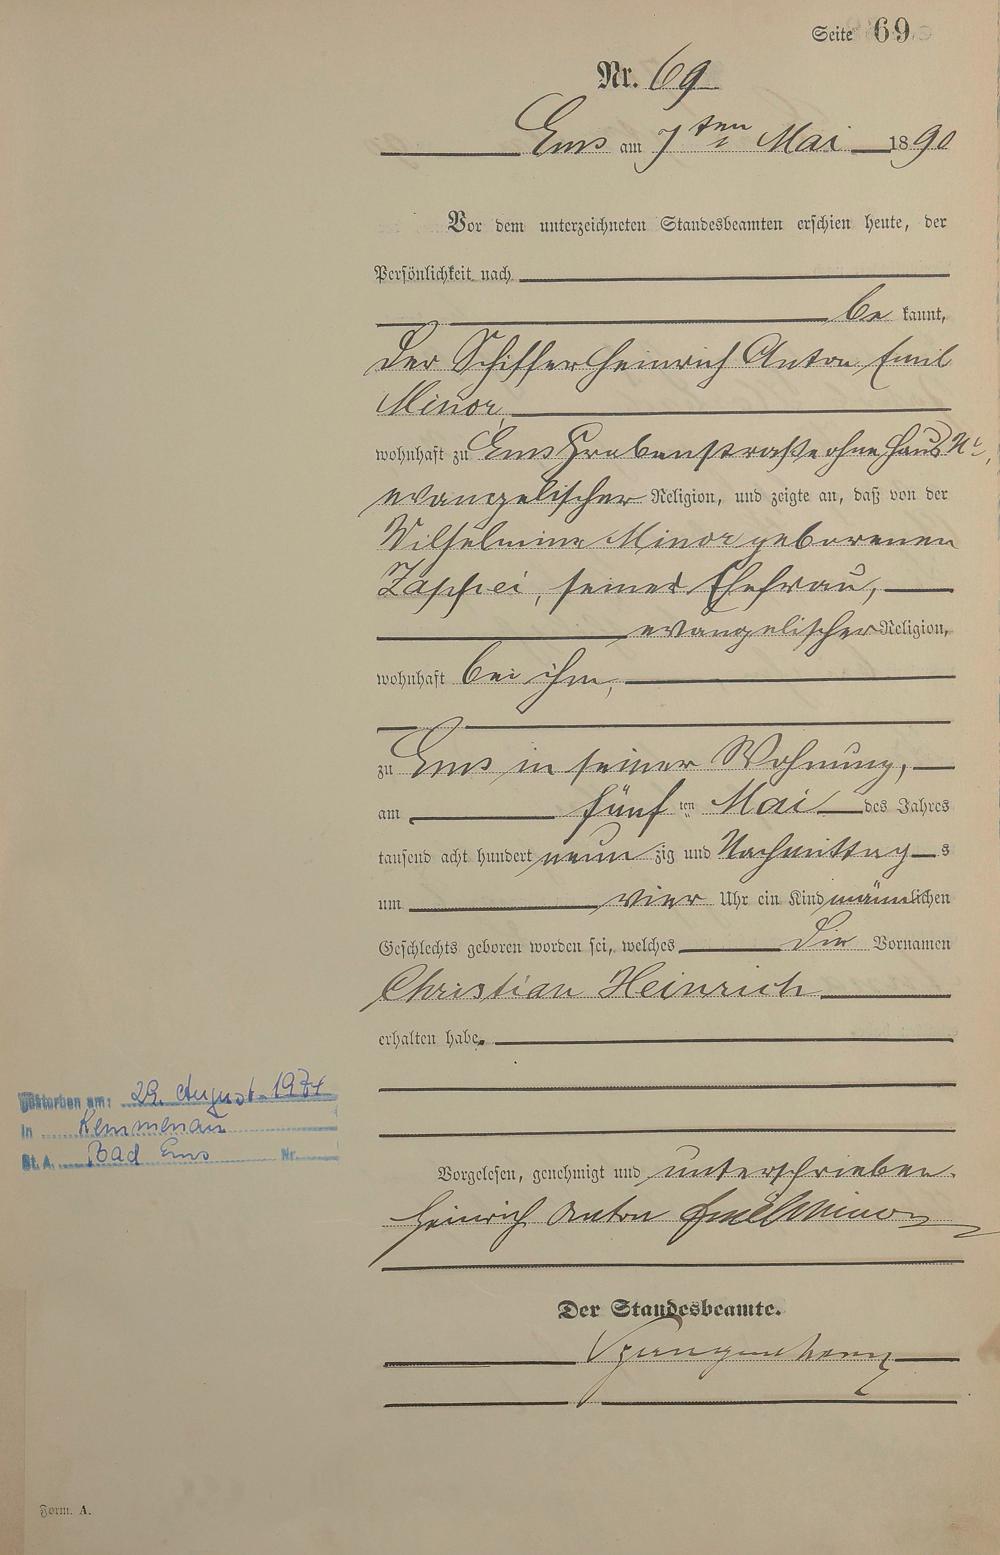 Seite 69
Nr. 69
Ems am 7ten Mai 1890
Vor dem unterzeichneten Standesbeamten erschien heute, der
Persönlichkeit nach
be kannt,
der Schiffer Heinrich Anton Emil
Minor,
wohnhaft zu Ems Grabenstraße ohne Haus Nr,
evangelischer Religion, und zeigte an, daß von der
Wilhelmine Minor geborenen
Zappei, seiner Ehefrau,
evangelischer Religion,
wohnhaft bei ihm,
zu Ems in seiner Wohnung,
am fünf ten Mai des Jahres
tausend acht hundert neun zig und Nachmittag s
um vier Uhr ein Kind männlichen
Geschlechts geboren worden sei, welches die Vornamen
Christian Heinrich
erhalten habe.
Gestorben am: 29. August 1974
in Kemmenau
St. A. Bad Ems Nr.
Vorgelesen, genehmigt und unterschrieben.
Heinrich Anton Emil Minor
Der Standesbeamte.
Form. A.